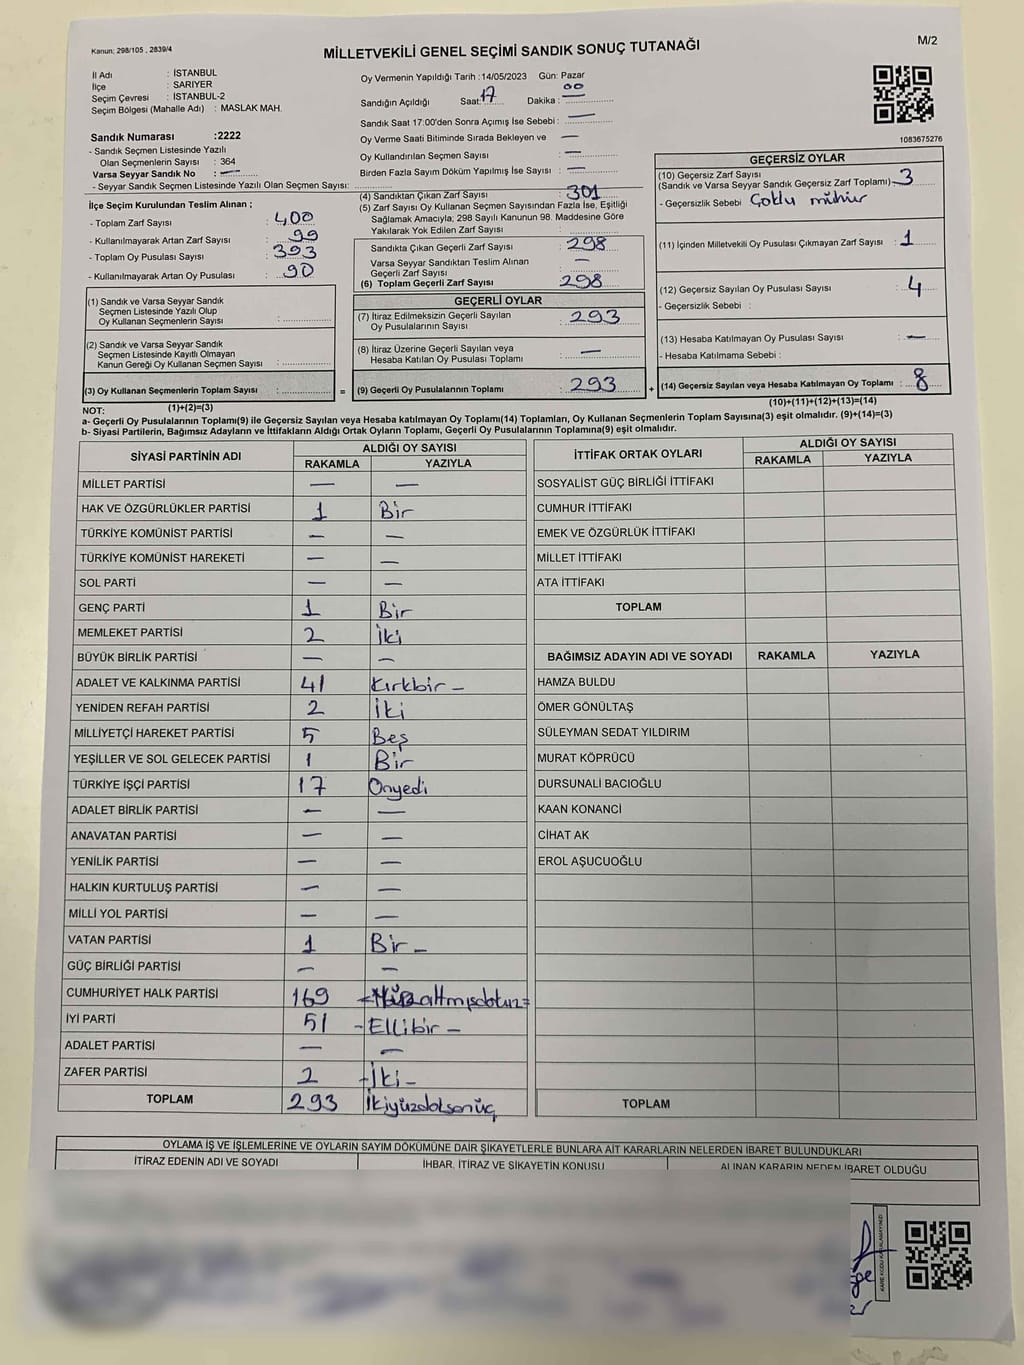 Kanun: 298/105 , 2839/4
MİLLETVEKİLİ GENEL SEÇİMİ SANDIK SONUÇ TUTANAĞI
M/2
İl Adı : İSTANBUL
İlçe : SARIYER
Seçim Çevresi : İSTANBUL-2
Seçim Bölgesi (Mahalle Adı) : MASLAK MAH.
Sandık Numarası :2222
- Sandık Seçmen Listesinde Yazılı
Olan Seçmenlerin Sayısı : 364
Varsa Seyyar Sandık No : —
- Seyyar Sandık Seçmen Listesinde Yazılı Olan Seçmen Sayısı:
İlçe Seçim Kurulundan Teslim Alınan ;
- Toplam Zarf Sayısı : 400
- Kullanılmayarak Artan Zarf Sayısı : 99
- Toplam Oy Pusulası Sayısı : 393
- Kullanılmayarak Artan Oy Pusulası : 90
(1) Sandık ve Varsa Seyyar Sandık
Seçmen Listesinde Yazılı Olup
Oy Kullanan Seçmenlerin Sayısı :
(2) Sandık ve Varsa Seyyar Sandık
Seçmen Listesinde Kayıtlı Olmayan
Kanun Gereği Oy Kullanan Seçmen Sayısı :
(3) Oy Kullanan Seçmenlerin Toplam Sayısı : =
(1)+(2)=(3)
Oy Vermenin Yapıldığı Tarih :14/05/2023 Gün: Pazar
Sandığın Açıldığı Saat: 17 Dakika : 00
Sandık Saat 17:00'den Sonra Açılmış İse Sebebi : —
Oy Verme Saati Bitiminde Sırada Bekleyen ve —
Oy Kullandırılan Seçmen Sayısı : —
Birden Fazla Sayım Döküm Yapılmış İse Sayısı : —
(4) Sandıktan Çıkan Zarf Sayısı : 301
(5) Zarf Sayısı Oy Kullanan Seçmen Sayısından Fazla İse, Eşitliği
Sağlamak Amacıyla; 298 Sayılı Kanunun 98. Maddesine Göre
Yakılarak Yok Edilen Zarf Sayısı :
Sandıkta Çıkan Geçerli Zarf Sayısı : 298
Varsa Seyyar Sandıktan Teslim Alınan
Geçerli Zarf Sayısı : —
(6) Toplam Geçerli Zarf Sayısı : 298
GEÇERLİ OYLAR
(7) İtiraz Edilmeksizin Geçerli Sayılan
Oy Pusulalarının Sayısı : 293
(8) İtiraz Üzerine Geçerli Sayılan veya
Hesaba Katılan Oy Pusulası Toplamı : —
(9) Geçerli Oy Pusulalarının Toplamı : 293 +
1083675276
GEÇERSİZ OYLAR
(10) Geçersiz Zarf Sayısı
(Sandık ve Varsa Seyyar Sandık Geçersiz Zarf Toplamı) : 3
- Geçersizlik Sebebi : Çoklu mühür
(11) İçinden Milletvekili Oy Pusulası Çıkmayan Zarf Sayısı : 1
(12) Geçersiz Sayılan Oy Pusulası Sayısı : 4
- Geçersizlik Sebebi :
(13) Hesaba Katılmayan Oy Pusulası Sayısı : —
- Hesaba Katılmama Sebebi :
(14) Geçersiz Sayılan veya Hesaba Katılmayan Oy Toplamı : 8
(10)+(11)+(12)+(13)=(14)
NOT:
a- Geçerli Oy Pusulalarının Toplamı(9) ile Geçersiz Sayılan veya Hesaba katılmayan Oy Toplamı(14) Toplamları, Oy Kullanan Seçmenlerin Toplam Sayısına(3) eşit olmalıdır. (9)+(14)=(3)
b- Siyasi Partilerin, Bağımsız Adayların ve İttifakların Aldığı Ortak Oyların Toplamı, Geçerli Oy Pusulalarının Toplamına(9) eşit olmalıdır.
SİYASİ PARTİNİN ADI ALDIĞI OY SAYISI
RAKAMLA YAZIYLA
MİLLET PARTİSİ — —
HAK VE ÖZGÜRLÜKLER PARTİSİ 1 Bir
TÜRKİYE KOMÜNİST PARTİSİ — —
TÜRKİYE KOMÜNİST HAREKETİ — —
SOL PARTİ — —
GENÇ PARTİ 1 Bir
MEMLEKET PARTİSİ 2 İki
BÜYÜK BİRLİK PARTİSİ — —
ADALET VE KALKINMA PARTİSİ 41 Kırkbir —
YENİDEN REFAH PARTİSİ 2 İki
MİLLİYETÇİ HAREKET PARTİSİ 5 Beş
YEŞİLLER VE SOL GELECEK PARTİSİ 1 Bir
TÜRKİYE İŞÇİ PARTİSİ 17 Onyedi
ADALET BİRLİK PARTİSİ — —
ANAVATAN PARTİSİ — —
YENİLİK PARTİSİ — —
HALKIN KURTULUŞ PARTİSİ — —
MİLLİ YOL PARTİSİ — —
VATAN PARTİSİ 1 Bir —
GÜÇ BİRLİĞİ PARTİSİ — —
CUMHURİYET HALK PARTİSİ 169
İYİ PARTİ 51 - Ellibir —
ADALET PARTİSİ — —
ZAFER PARTİSİ 2 - İki -
TOPLAM 293 İkiyüzdoksanüç
İTTİFAK ORTAK OYLARI ALDIĞI OY SAYISI
RAKAMLA YAZIYLA
SOSYALİST GÜÇ BİRLİĞİ İTTİFAKI
CUMHUR İTTİFAKI
EMEK VE ÖZGÜRLÜK İTTİFAKI
MİLLET İTTİFAKI
ATA İTTİFAKI
TOPLAM
BAĞIMSIZ ADAYIN ADI VE SOYADI RAKAMLA YAZIYLA
HAMZA BULDU
ÖMER GÖNÜLTAŞ
SÜLEYMAN SEDAT YILDIRIM
MURAT KÖPRÜCÜ
DURSUNALİ BACIOĞLU
KAAN KONANCİ
CİHAT AK
EROL AŞUCUOĞLU
TOPLAM
OYLAMA İŞ VE İŞLEMLERİNE VE OYLARIN SAYIM DÖKÜMÜNE DAİR ŞİKAYETLERLE BUNLARA AİT KARARLARIN NELERDEN İBARET BULUNDUKLARI
İTİRAZ EDENİN ADI VE SOYADI İHBAR, İTİRAZ VE ŞİKAYETİN KONUSU ALINAN KARARIN NEDEN İBARET OLDUĞU